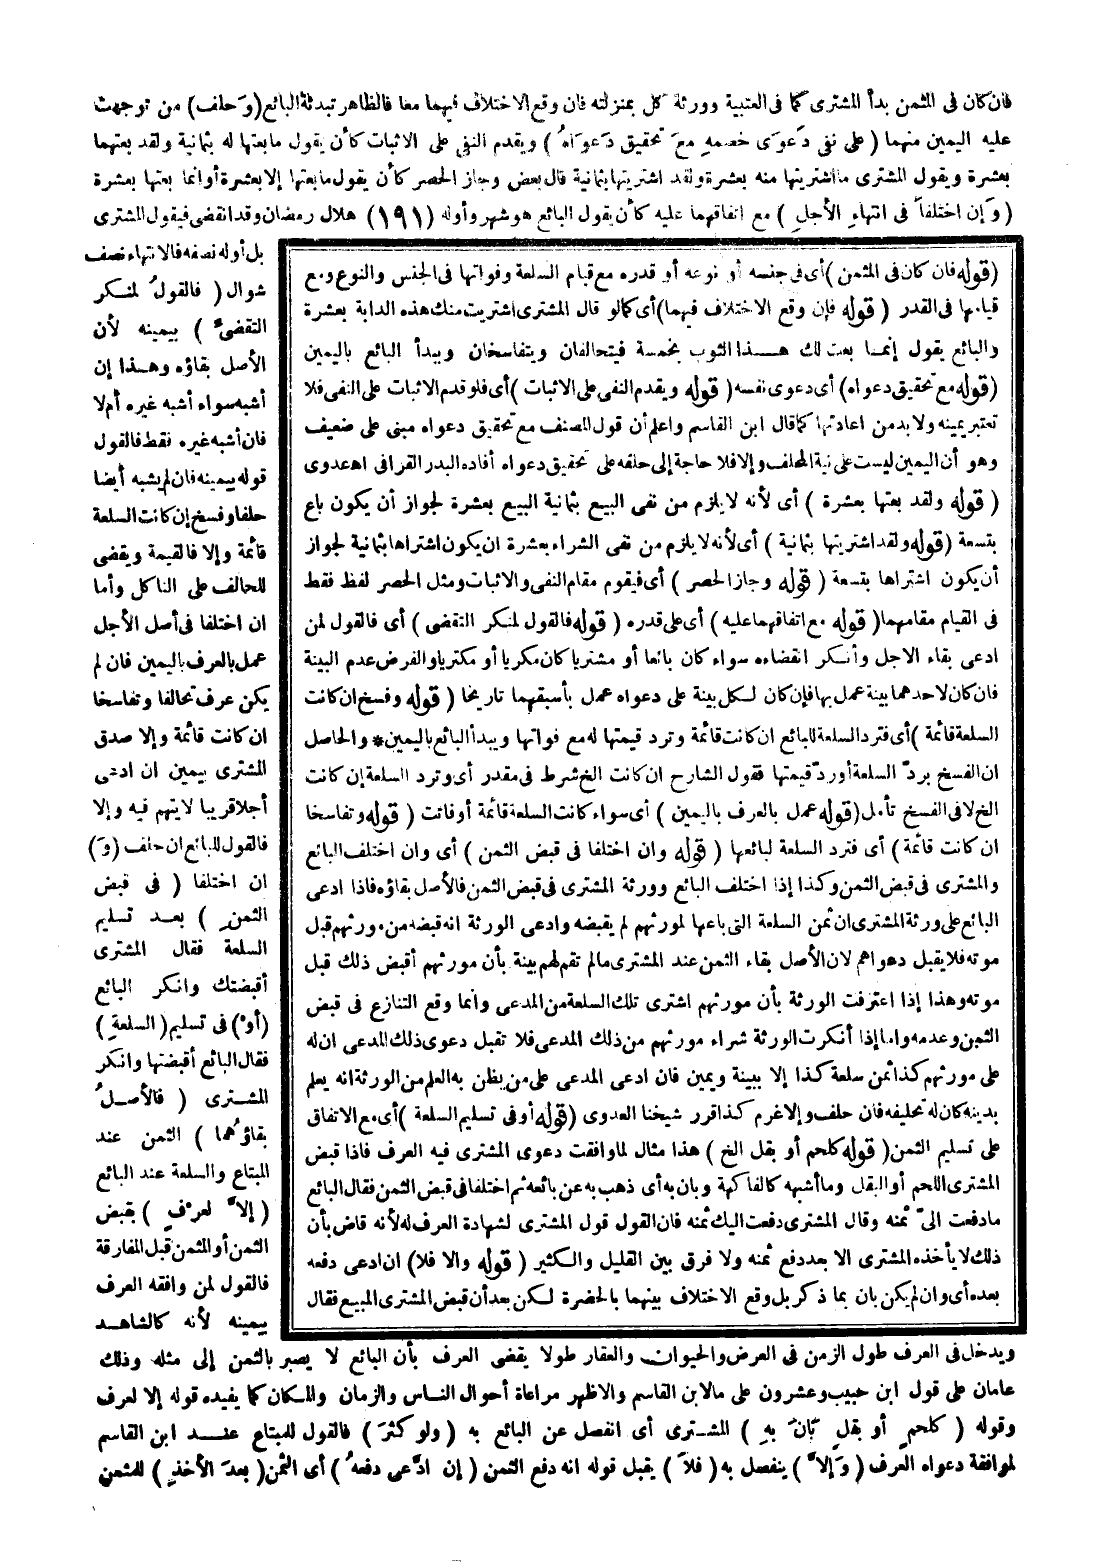 فان كان فى المثمن بدأ المشترى كما فى العتبية وورثة كل بمنزلته فان وقع الاختلاف فيهما معا فالظاهر تبدئة البائع (وَحلف) من توجهت
عليه اليمين منهما ( على نفى دَعوَى خصمهِ معَ تحقيق دَعوَاهُ ) ويقدم النفى على الاثبات كأن يقول مابعتها له بثمانية ولقد بعتها
بعشرة ويقول المشترى مااشتريتها منه بعشرة ولقد اشتريتها بثمانية قال بعض وجاز الحصر كأن يقول مابعتها إلا بعشرة أوانما بعتها بعشرة
( وَإن اختلفاَ فى انتهاءِ الأجلِ ) مع اتفاقهما عليه كأن يقول البائع هو شهر وأوله (١٩١) هلال رمضان وقد انقضى فيقول المشترى
بل أوله نصفه فالانتهاء نصف
شوال ( فالقولُ لمنكر
التقضى ) بيمينه لأن
الأصل بقاؤه وهذا إن
أشبه سواء أشبه غيره أم لا
فان أشبه غيره فقط فالقول
قوله بيمينه فان لم يشبه أيضا
حلفا وفسخ إن كانت السلعة
قائمة وإلا فالقيمة ويقضى
للحالف على الناكل وأما
ان اختلفا فى أصل الأجل
عمل بالعرف باليمين فان لم
يكن عرف تحالفا وتفاسخا
ان كانت قائمة وإلا صدق
المشترى بيمين ان ادعى
أجلا قريبا لايتهم فيه وإلا
فالقول للبائع ان حلف (وَ)
ان اختلفا ( فى قبض
الثمنِ ) بعد تسليم
السلعة فقال المشترى
أقبضتك وانكر البائع
(أوْ) فى تسليم ( السلعةِ )
فقال البائع أقبضتها وانكر
المشترى ( فالأصلُ
بقاؤهُما ) الثمن عند
المبتاع والسلعة عند البائع
( إلاّ لعرْفٍ ) بقبض
الثمن أو المثمن قبل المفارقة
فالقول لمن وافقه العرف
بيمينه لأنه كالشاهد
(قوله فان كان فى المثمن ) أى فى جنسه أو نوعه أو قدره مع قيام السلعة وفواتها فى الجنس والنوع ومع
قيامها فى القدر ( قوله فإن وقع الاختلاف فيهما) أى كمالو قال المشترى اشتريت منك هذه الدابة بعشرة
والبائع يقول إنما بعت لك هذا الثوب بخمسة فيتحالفان ويتفاسخان ويبدأ البائع باليمين
(قوله مع تحقيق دعواه) أى دعوى نفسه ( قوله ويقدم النفى على الاثبات ) أى فلو قدم الاثبات على النفى فلا
تعتبر يمينه ولابد من اعادتها كما قال ابن القاسم واعلم أن قول المصنف مع تحقيق دعواه مبنى على ضعيف
وهو أن اليمين ليست على نية المحلف وإلا فلا حاجة إلى حلفه على تحقيق دعواه أفاده البدر القرافى اه عدوى
( قوله ولقد بعتها بعشرة ) أى لأنه لايلزم من نفى البيع بثمانية البيع بعشرة لجواز أن يكون باع
بتسعة (قوله ولقد اشتريتها بثمانية ) أى لأنه لايلزم من نفى الشراء بعشرة ان يكون اشتراها بثمانية لجواز
أن يكون اشتراها بتسعة ( قوله وجاز الحصر ) أى فيقوم مقام النفى والاثبات ومثل الحصر لفظ فقط
فى القيام مقامهما ( قوله مع اتفاقهما عليه ) أى على قدره ( قوله فالقول لمنكر التقضى ) أى فالقول لمن
ادعى بقاء الاجل وأنكر انقضاءه سواء كان بائعا أو مشتريا كان مكريا أو مكتريا والفرض عدم البينة
فان كان لاحدهما بينة عمل بها فإن كان لكل بينة على دعواه عمل بأسبقهما تاريخا ( قوله وفسخ ان كانت
السلعة قائمة ) أى فترد السلعة للبائع ان كانت قائمة وترد قيمتها له مع فواتها ويبدأ البائع باليمين* والحاصل
ان الفسخ بردّ السلعة أوردّ قيمتها فقول الشارح ان كانت الخ شرط فى مقدر أى وترد السلعة إن كانت
الخ لا فى الفسخ تأمل (قوله عمل بالعرف باليمين ) أى سواء كانت السلعة قائمة أو فاتت ( قوله وتفاسخا
ان كانت قائمة ) أى فترد السلعة لبائعها ( قوله وان اختلفا فى قبض الثمن ) أى وان اختلف البائع
والمشترى فى قبض الثمن وكذا إذا اختلف البائع وورثة المشترى فى قبض الثمن فالأصل بقاؤه فاذا ادعى
البائع على ورثة المشترى ان ثمن السلعة التى باعها لمورثهم لم يقبضه وادعى الورثة انه قبضه من مورثهم قبل
موته فلا يقبل دعواهم لان الأصل بقاء الثمن عند المشترى مالم تقم لهم بينة بأن مورثهم أقبض ذلك قبل
موته وهذا إذا اعترفت الورثة بأن مورثهم اشترى تلك السلعة من المدعى وانما وقع التنازع فى قبض
الثمن وعدمه واما إذا أنكرت الورثة شراء مورثهم من ذلك المدعى فلا تقبل دعوى ذلك المدعى ان له
على مورثهم كذا ثمن سلعة كذا إلا ببينة ويمين فان ادعى المدعى على من يظن به العلم من الورثة انه يعلم
بدينه كان له تحليفه فان حلف وإلا غرم كذا قرر شيخنا العدوى (قوله أو فى تسليم السلعة ) أى مع الاتفاق
على تسليم الثمن ( قوله كلحم أو بقل الخ ) هذا مثال لما وافقت دعوى المشترى فيه العرف فاذا قبض
المشترى اللحم أو البقل وما أشبه كالفاكهة وبان به أى ذهب به عن بائعه ثم اختلفا فى قبض الثمن فقال البائع
مادفعت الىّ ثمنه وقال المشترى دفعت اليك ثمنه فان القول قول المشترى لشهادة العرف له لأنه قاض بأن
ذلك لا يأخذه المشترى الا بعد دفع ثمنه ولا فرق بين القليل والكثير ( قوله والا فلا) ان ادعى دفعه
بعده أى وان لم يكن بان بما ذكر بل وقع الاختلاف بينهما بالحضرة لكن بعد أن قبض المشترى المبيع فقال
ويدخل فى العرف طول الزمن فى العرض والحيوان والعقار طولا يقضى العرف بأن البائع لا يصبر بالثمن إلى مثله وذلك
عامان على قول ابن حبيب وعشرون على مالابن القاسم والاظهر مراعاة أحوال الناس والزمان والمكان كما يفيده قوله إلا لعرف
وقوله ( كلحمٍ أو بقلٍ بَانَ بهِ ) المشترى أى انفصل عن البائع به ( ولو كثرَ ) فالقول للمبتاع عند ابن القاسم
لموافقة دعواه العرف ( وَإلاّ ) ينفصل به ( فلاَ ) يقبل قوله انه دفع الثمن ( إن ادّعى دفعهُ ) أى الثمن ( بعدَ الأخذِ ) للمثمن